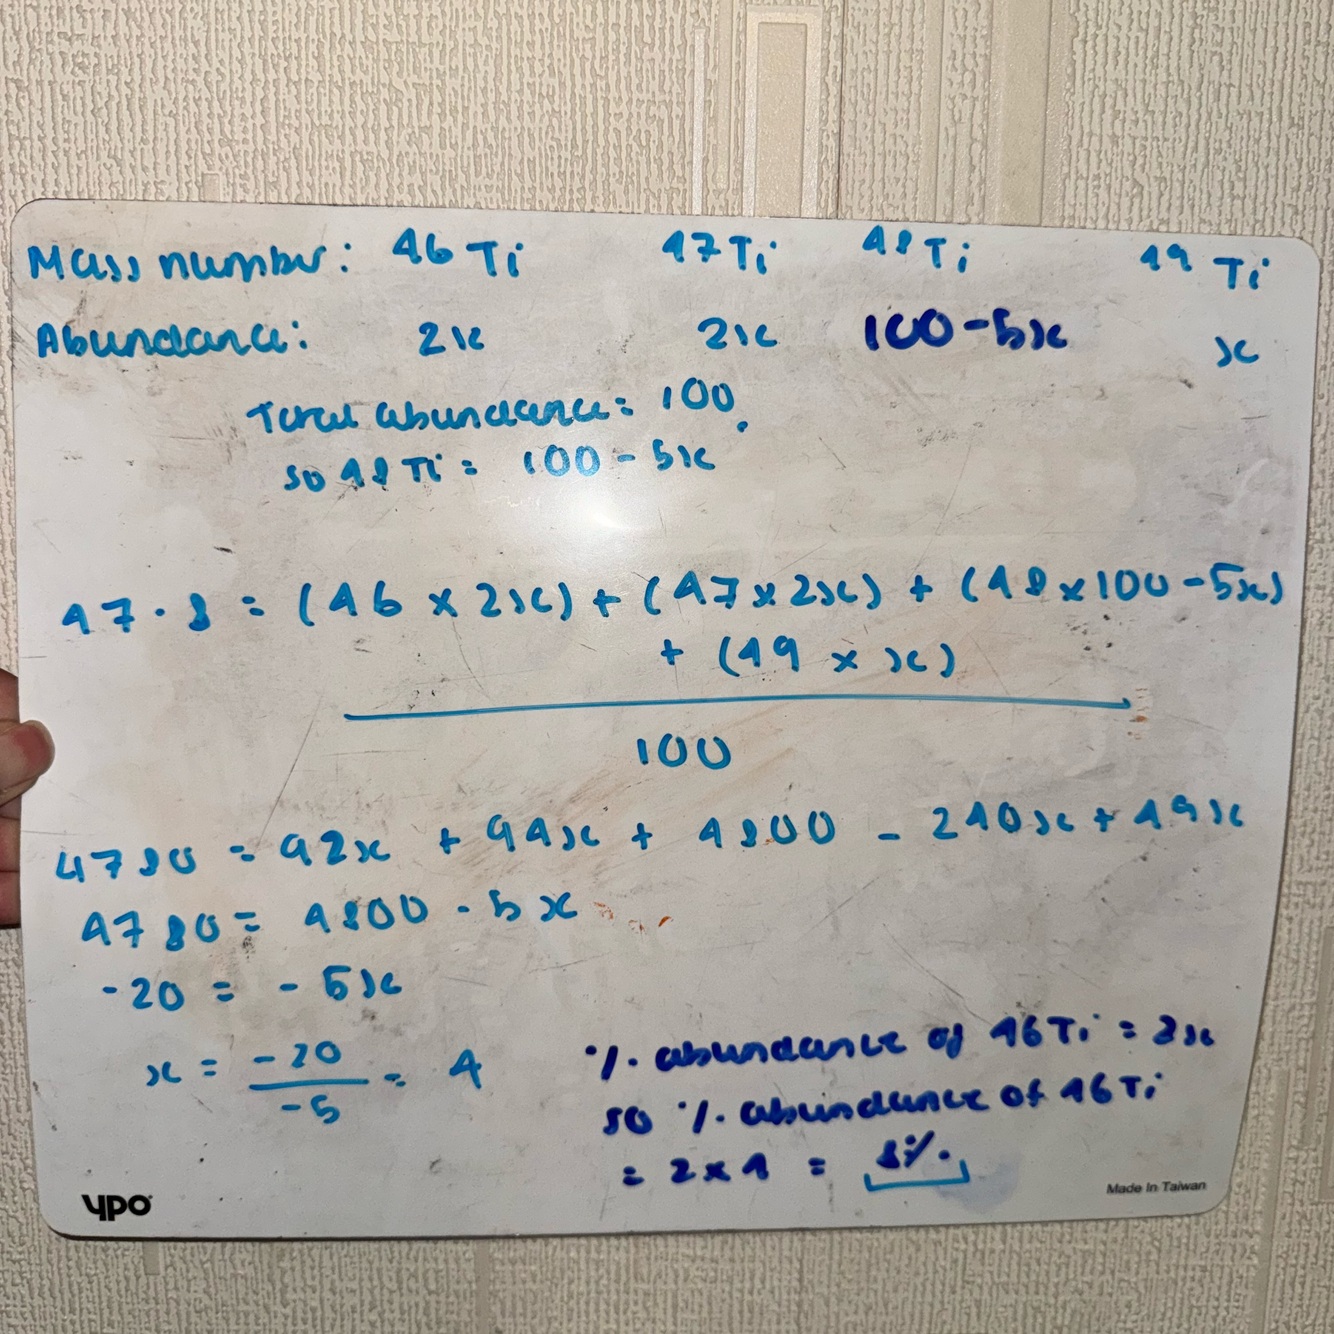 Mass number: 46 Ti 47 Ti 48 Ti 49 Ti
Abundance: 2x 2x 100-5x x
Total abundance= 100.
so 48 Ti = 100 - 5x
47.8 = (46 x 2x) + (47 x 2x) + (48 x 100 - 5x)
+ (49 x x)
100
4780 = 92x + 94x + 4800 - 240x + 49x
4780 = 4800 - 5x
-20 = - 5x
x = -20 / -5 = 4
% abundance of 46 Ti = 2x
so % abundance of 46 Ti
= 2 x 4 = 8%.
ypo
Made In Taiwan